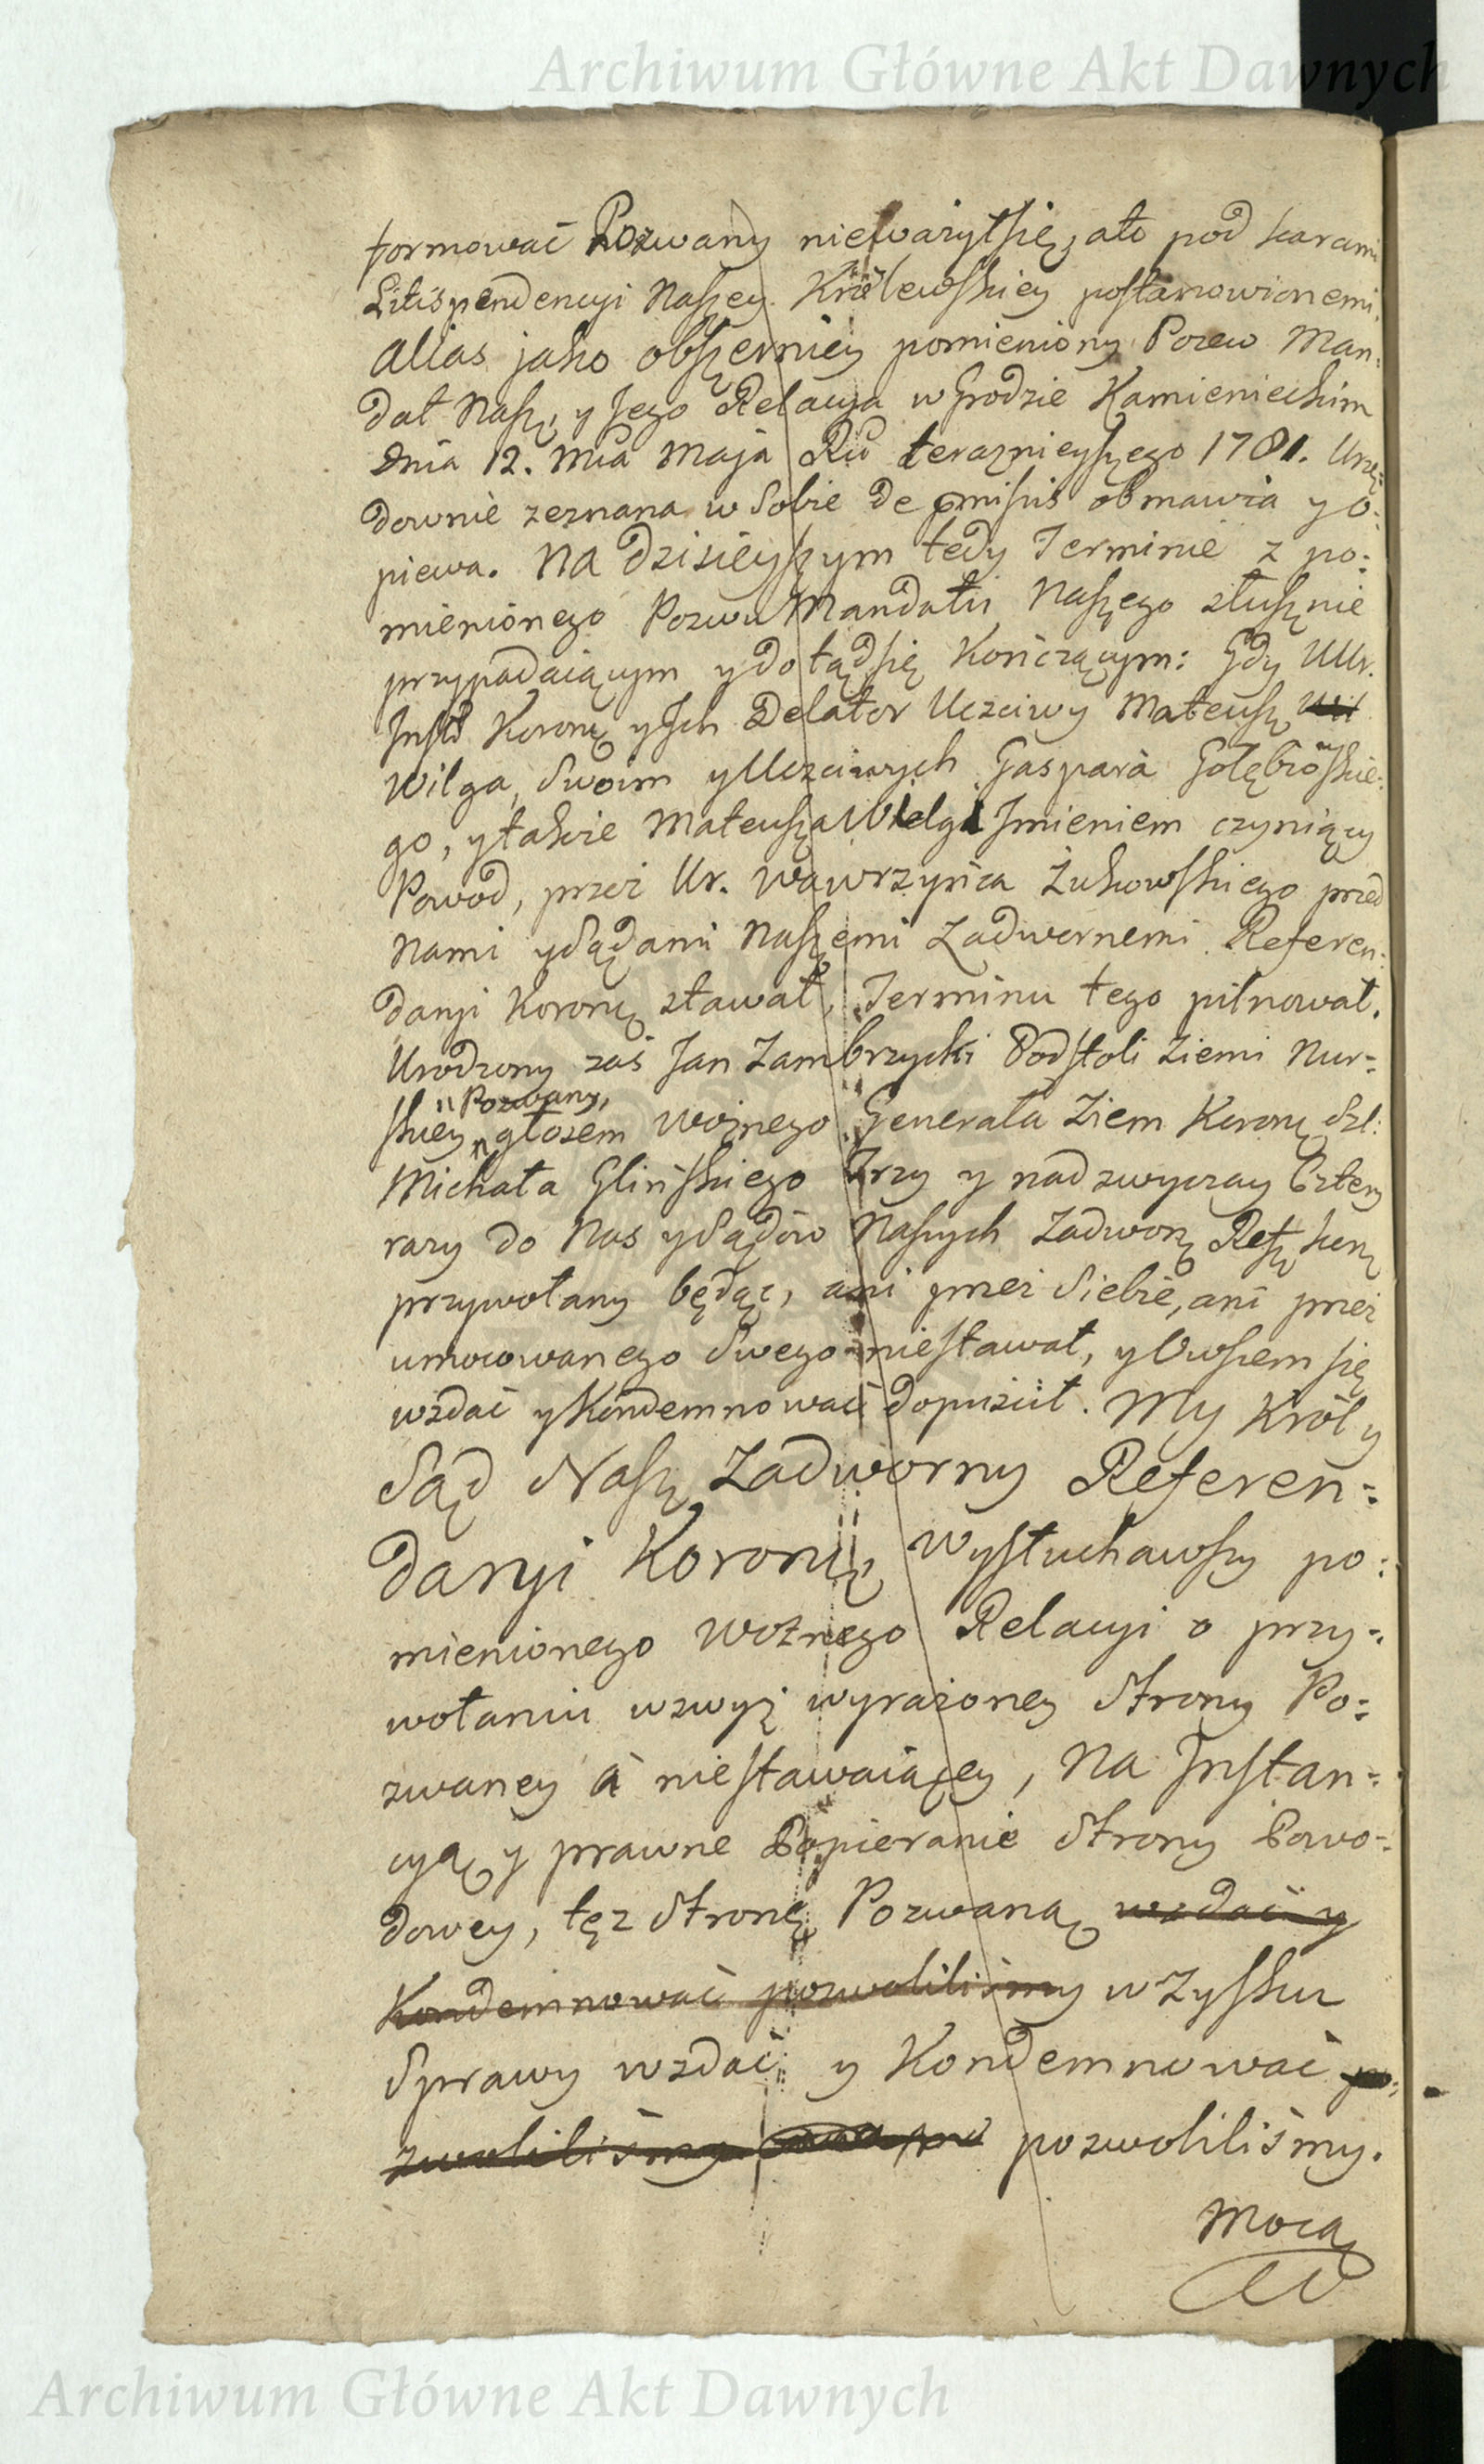 Archiwum Główne Akt Dawnych
formować Pozwany nieważył się, ato pod karami
Litispendencyi Naszey Królewskiey postanowionemi,
alias jako obszerniey pomieniony Pozew Man:
dat Nasz, y Jego Relacya w Grodzie Kamienieckim
dnia 12. Mca Maja Ru teraznieyszego 1781. Urzę:
downie zeznana w Sobie de pmissis obmawia y o:
piewa. Na dzisieyszym tedy Terminie z po:
mienionego Pozwu Mandatu Naszego słusznie
przypadaiącym y dotąd się Kończącym: Gdy UUr.
Inst Koronę y Ich Delator Uczciwy Mateusz Wil
Wilga, Swoim y Uczciwych Gaspara Gołębiowskie:
go, y także Mateusza Wielgi Imieniem czyniący
Powod, przez Ur. Wawrzyńca Żukowskiego przed
Nami y Sądami Naszemi Zadwornemi Referen:
daryi Koronę stawał, Terminu tego pilnował.
Urodzony zaś Jan Zambrzycki Podstoli Ziemi Nur:
Pozwany,
skiey głosem Woznego Generała Ziem Koronę Szl:
Michała Glińskiego Trzy y nad zwyczay Cztery
razy do Nas y Sądów Naszych Zadworę Refę korę
przywołany będąc, ani przez Siebie, ani przez
umocowanego Swego niestawał, y Owszem się
wzdać y Kondemnować dopuścił. My Król y
Sąd Nasz Zadworny Referen:
daryi Koronę, wysłuchawszy po:
mienionego Woznego Relacyi o przy:
wołaniu wzwyż wyrażoney Strony Po:
zwaney a niestawaiącey, Na Instan:
cyą y prawne Popieranie Strony Powo:
dowey, tęz Stronę Pozwaną wzdać y
Kondemnować pozwoliliśmy w Zysku
Sprawy wzdać y Kondemnować po:
zwoliliśmy pozwoliliśmy.
Mocą
Archiwum Główne Akt Dawnych